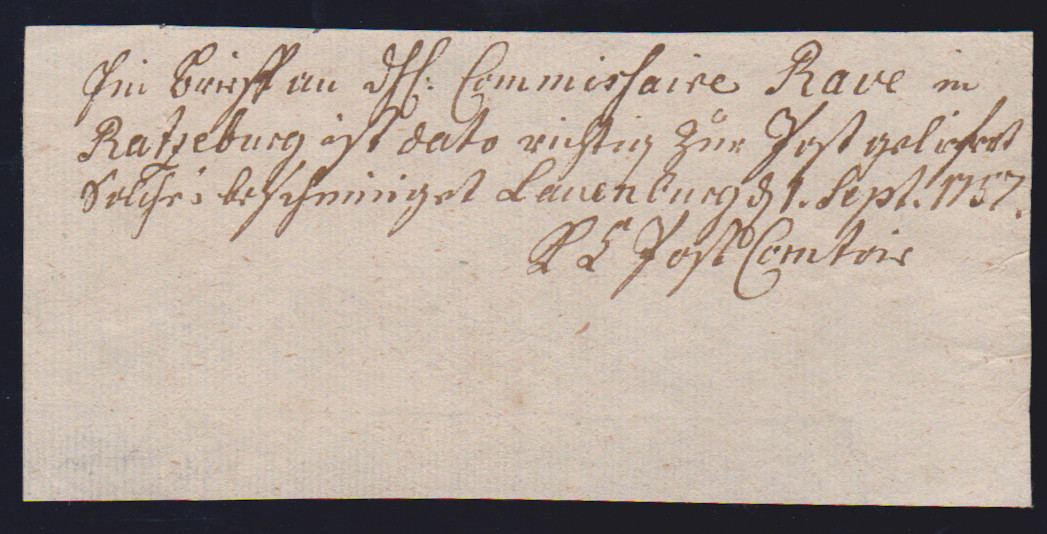 Ein Brieff an dH: Commissaire Rave in
Ratzeburg ist dato richtig zur Post geliefert
Solches bescheiniget Lauenburg d 1. Sept. 1757.
Post Comtoir